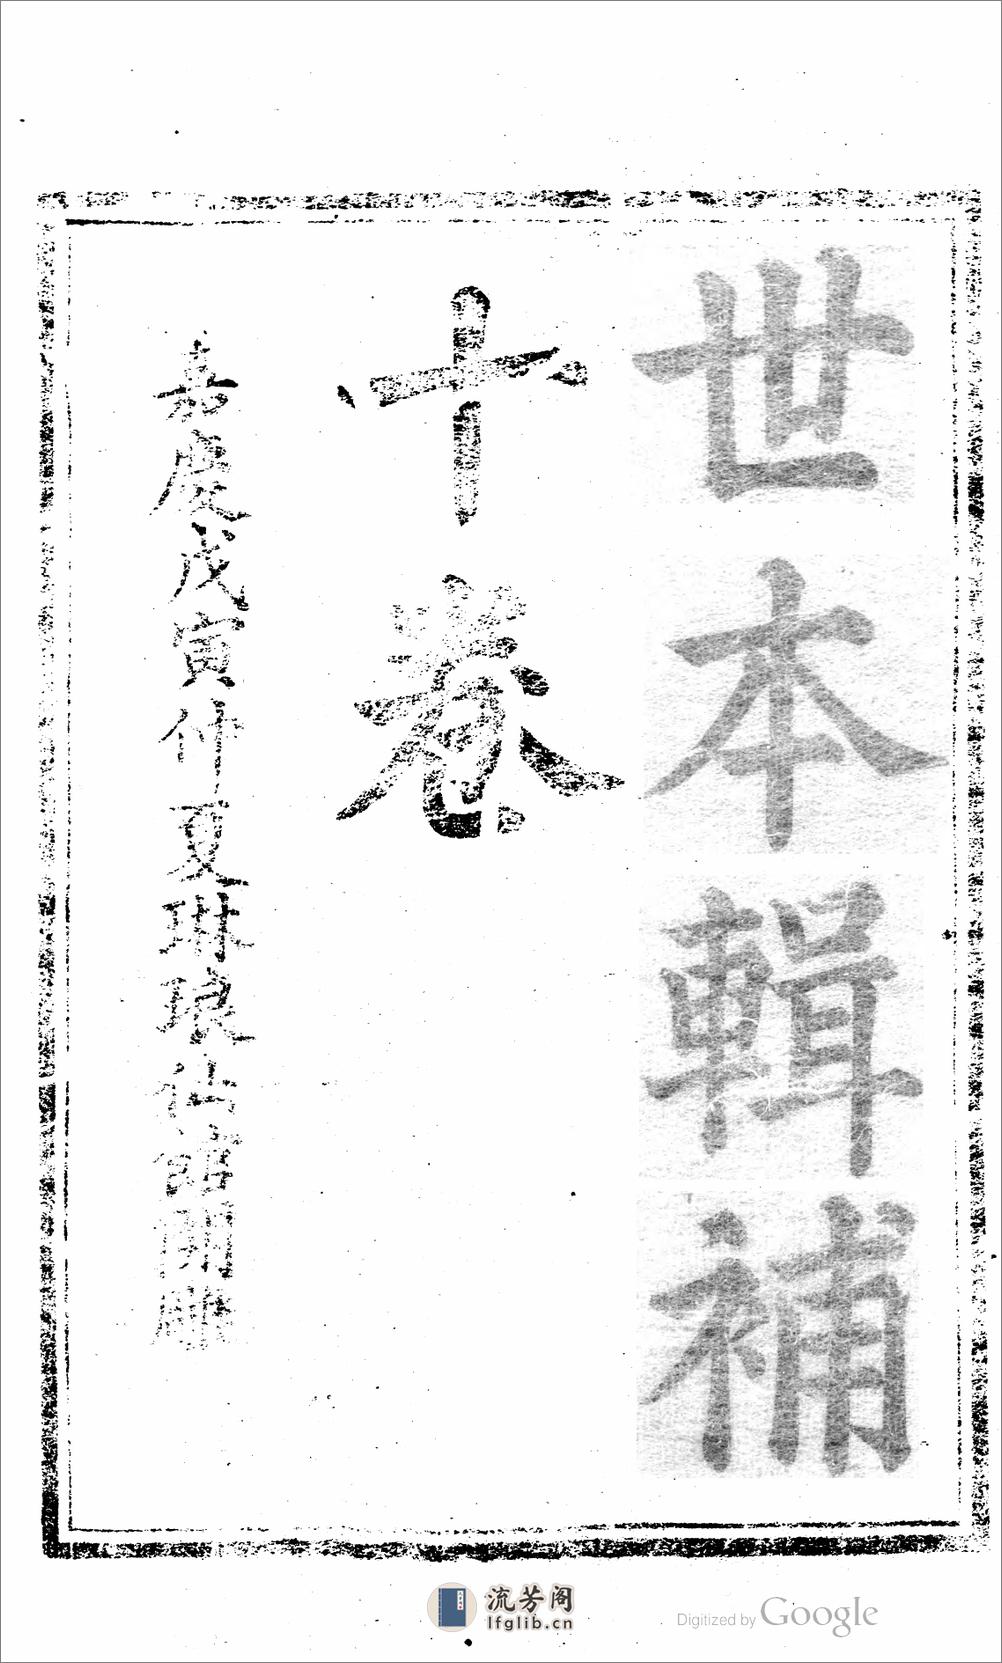 世本輯補
十卷
嘉慶戊寅仲夏琳琅仙館開雕
流芳阁
lfglib.cn
Digitized by Google